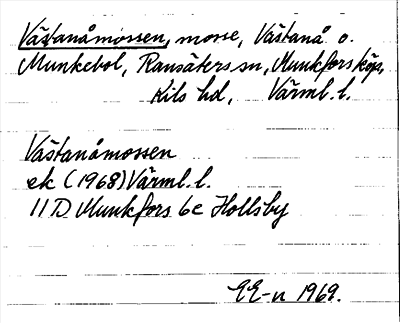 Västanåmossen, mosse, Västanå o.
Munkebol, Ransäters sn, Munkfors köp,
Kils hd, Värml. l.
Västanåmossen
ek (1968) Värml. l.
11 D Munkfors 6c Hollsby
EE-n 1969.